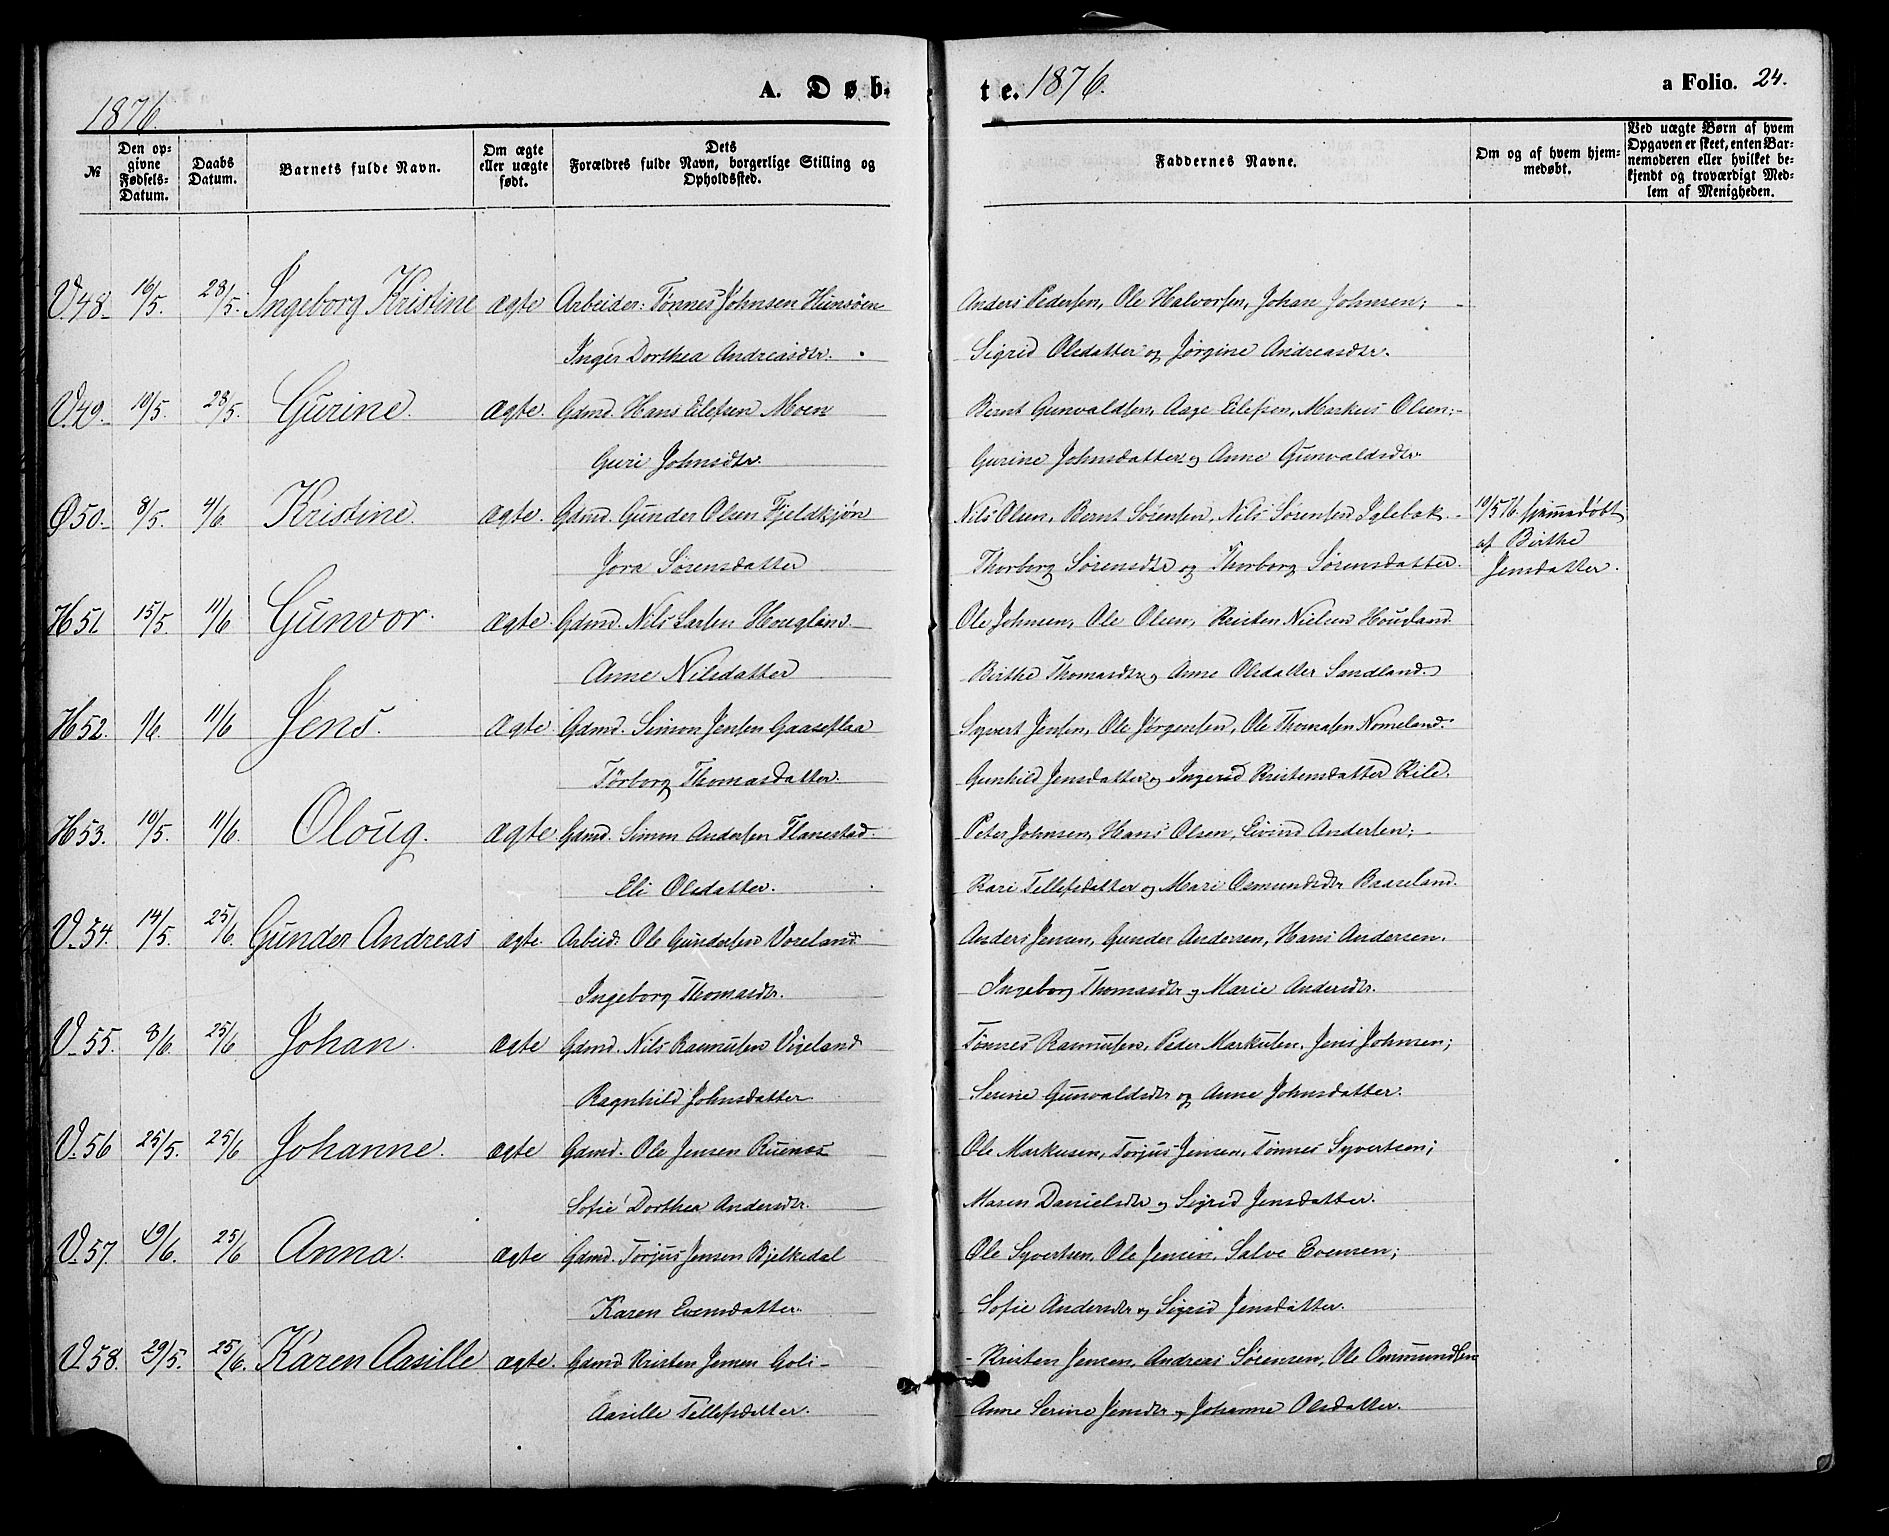 1876.
A. Døb-
te. 1876.
a Folio. 24.
№
Den op-
givne
Fødsels-
Datum.
Daabs
Datum.
Barnets fulde Navn.
Om ægte
eller uægte
født.
Dets
Forældres fulde Navn, borgerlige Stilling og
Opholdssted.
Faddernes Navne.
Om og af hvem hjem-
medøbt.
Ved uægte Børn af hvem
Opgaven er skeet, enten Bar-
nemoderen eller hvilket be-
kjendt og troværdigt Med-
lem af Menigheden.
V.48. 16/5. 28/5. Ingeborg Kristine ægte Arbeider. Tønnes Johnsen Hunsøen Anders Pedersen, Ole Halvorsen, Johan Johnsen;
Inger Dorthea Andreasdtr. Sigrid Olsdatter og Jørgine Andreasdtr.
V.49. 19/5. 28/5. Gurine. ægte. Gdmd. Hans Elefsen Moen Bernt Gunvaldsen, Aage Elefsen, Markus Olsen;
Guri Johnsdtr. Gurine Johnsdatter og Anne Gunvaldsdtr.
Ø50. 8/5. 4/6. Kristine. ægte. Gdmd. Gunder Olsen Fjeldkjøn Nils Olsen, Bernt Sørensen, Nils Sørensen Iglebæk. 10/5 76. hjemmedøbt
Jora Sørensdatter Thorborg Sørensdtr og Thorborg Sørensdatter. af Birthe
Jensdatter.
H51. 15/5. 11/6 Gunvor. ægte. Gdmd. Nils Larsen Hougland Ole Johnsen, Ole Olsen, Kristen Nielsen Hougland
Anne Nilsdatter Birthe Thomasdtr og Anne Olsdatter Sandland.
H52. 1/6. 11/6 Jens. ægte Gdmd. Simon Jensen Gaaseflaa Syvert Jensen, Ole Jørgensen, Ole Thomasen Nomeland.
Tørborg Thomasdatter. Gunhild Jensdatter og Ingerid Kristensdatter Kile.
H53. 10/5. 11/6. Oloug. ægte. Gdmd. Simon Andersen Flanestad. Peter Johnsen, Hans Olsen, Eivind Andersen;
Eli Olsdatter. Kari Tellefsdatter og Mari Osmundsdtr Baaseland.
V.54. 14/5. 25/6. Gunder Andreas ægte. Arbeid. Ole Gundersen Voreland Anders Jensen, Gunder Andersen, Hans Andersen.
Ingeborg Thomasdtr. Ingeborg Thomasdtr og Marie Andersdtr.
V.55. 8/6. 25/6 Johan. ægte Gdmd. Nils Rasmusen Vigeland Tønnes Rasmusen, Peder Markusen, Jens Johnsen;
Ragnhild Johnsdatter Serine Gunvaldsdtr og Anne Johnsdatter.
V.56 25/5. 25/6 Johanne. ægte Gdmd. Ole Jensen Ruenes Ole Markusen, Torjus Jensen, Tønnes Syvertsen;
Sofie Dorthea Andersdtr. Maren Danielsdtr og Sigrid Jensdatter.
V.57. 19/6. 25/6 Anna. ægte Gdmd. Torjus Jensen Bjelkedal Ole Syvertsen, Ole Jensen, Salve Evensen;
Karen Evensdatter. Sofie Andersdtr og Sigrid Jensdatter.
V.58. 29/5. 25/6. Karen Aasille ægte. Gdmd Kristen Jensen Goli Kristen Jensen, Andreas Sørensen, Ole Ommundsen
Aasille Tellefsdatter. Anne Serine Jensdtr og Johanne Olsdatter.